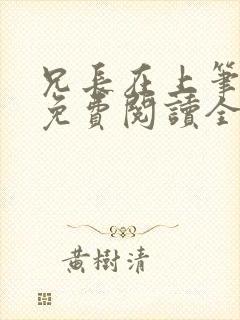 兄長在上筆
免費閱讀全
黃樹清